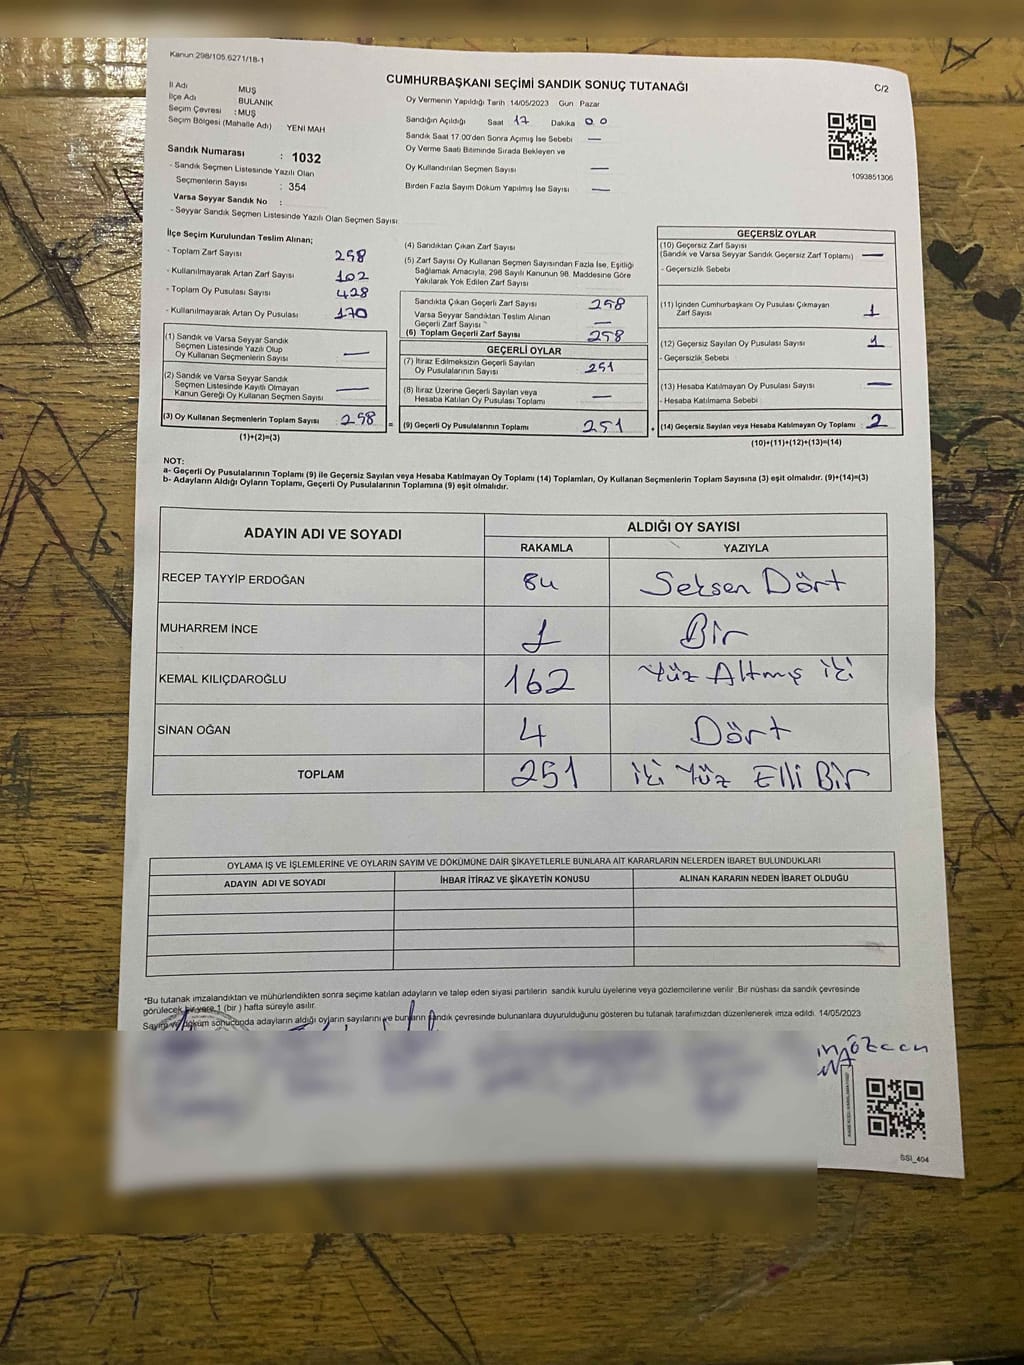 Kanun 298/105,6271/18-1
CUMHURBAŞKANI SEÇİMİ SANDIK SONUÇ TUTANAĞI
C/2
İl Adı MUŞ
İlçe Adı BULANIK
Seçim Çevresi : MUŞ
Seçim Bölgesi (Mahalle Adı) YENİ MAH
Oy Vermenin Yapıldığı Tarih : 14/05/2023 Gün : Pazar
Sandığın Açıldığı Saat 17 Dakika 00
Sandık Saat 17.00'den Sonra Açmış İse Sebebi —
Oy Verme Saati Bitiminde Sırada Bekleyen ve
Oy Kullandırılan Seçmen Sayısı —
Birden Fazla Sayım Döküm Yapılmış İse Sayısı —
1093851306
Sandık Numarası : 1032
- Sandık Seçmen Listesinde Yazılı Olan
Seçmenlerin Sayısı : 354
Varsa Seyyar Sandık No :
- Seyyar Sandık Seçmen Listesinde Yazılı Olan Seçmen Sayısı
İlçe Seçim Kurulundan Teslim Alınan;
- Toplam Zarf Sayısı 258
- Kullanılmayarak Artan Zarf Sayısı 102
- Toplam Oy Pusulası Sayısı 428
- Kullanılmayarak Artan Oy Pusulası 170
(1) Sandık ve Varsa Seyyar Sandık
Seçmen Listesinde Yazılı Olup
Oy Kullanan Seçmenlerin Sayısı —
(2) Sandık ve Varsa Seyyar Sandık
Seçmen Listesinde Kayıtlı Olmayan
Kanun Gereği Oy Kullanan Seçmen Sayısı —
(3) Oy Kullanan Seçmenlerin Toplam Sayısı : 258
(1)+(2)=(3)
(4) Sandıktan Çıkan Zarf Sayısı
(5) Zarf Sayısı Oy Kullanan Seçmen Sayısından Fazla İse, Eşitliği
Sağlamak Amacıyla, 298 Sayılı Kanunun 98. Maddesine Göre
Yakılarak Yok Edilen Zarf Sayısı
Sandıkta Çıkan Geçerli Zarf Sayısı 258
Varsa Seyyar Sandıktan Teslim Alınan
Geçerli Zarf Sayısı —
(6) Toplam Geçerli Zarf Sayısı 258
GEÇERLİ OYLAR
(7) İtiraz Edilmeksizin Geçerli Sayılan
Oy Pusulalarının Sayısı 251
(8) İtiraz Üzerine Geçerli Sayılan veya
Hesaba Katılan Oy Pusulası Toplamı —
= (9) Geçerli Oy Pusulalarının Toplamı 251
GEÇERSİZ OYLAR
(10) Geçersiz Zarf Sayısı
(Sandık ve Varsa Seyyar Sandık Geçersiz Zarf Toplamı) —
- Geçersizlik Sebebi
(11) İçinden Cumhurbaşkanı Oy Pusulası Çıkmayan
Zarf Sayısı 1
(12) Geçersiz Sayılan Oy Pusulası Sayısı 1
- Geçersizlik Sebebi
(13) Hesaba Katılmayan Oy Pusulası Sayısı —
- Hesaba Katılmama Sebebi
+ (14) Geçersiz Sayılan veya Hesaba Katılmayan Oy Toplamı : 2
(10)+(11)+(12)+(13)=(14)
NOT:
a- Geçerli Oy Pusulalarının Toplamı (9) ile Geçersiz Sayılan veya Hesaba Katılmayan Oy Toplamı (14) Toplamları, Oy Kullanan Seçmenlerin Toplam Sayısına (3) eşit olmalıdır. (9)+(14)=(3)
b- Adayların Aldığı Oyların Toplamı, Geçerli Oy Pusulalarının Toplamına (9) eşit olmalıdır.
ADAYIN ADI VE SOYADI ALDIĞI OY SAYISI
RAKAMLA YAZIYLA
RECEP TAYYİP ERDOĞAN 84 Seksen Dört
MUHARREM İNCE 1 Bir
KEMAL KILIÇDAROĞLU 162 Yüz Altmış iki
SİNAN OĞAN 4 Dört
TOPLAM 251 iki Yüz Elli Bir
OYLAMA İŞ VE İŞLEMLERİNE VE OYLARIN SAYIM VE DÖKÜMÜNE DAİR ŞİKAYETLERLE BUNLARA AİT KARARLARIN NELERDEN İBARET BULUNDUKLARI
ADAYIN ADI VE SOYADI İHBAR İTİRAZ VE ŞİKAYETİN KONUSU ALINAN KARARIN NEDEN İBARET OLDUĞU
*Bu tutanak imzalandıktan ve mühürlendikten sonra seçime katılan adayların ve talep eden siyasi partilerin sandık kurulu üyelerine veya gözlemcilerine verilir .Bir nüshası da sandık çevresinde
görülecek bir yere 1 (bir ) hafta süreyle asılır.
Sayım ve döküm sonucunda adayların aldığı oyların sayılarını ve bunların sandık çevresinde bulunanlara duyurulduğunu gösteren bu tutanak tarafımızdan düzenlenerek imza edildi. 14/05/2023
Özcan
SSI_404